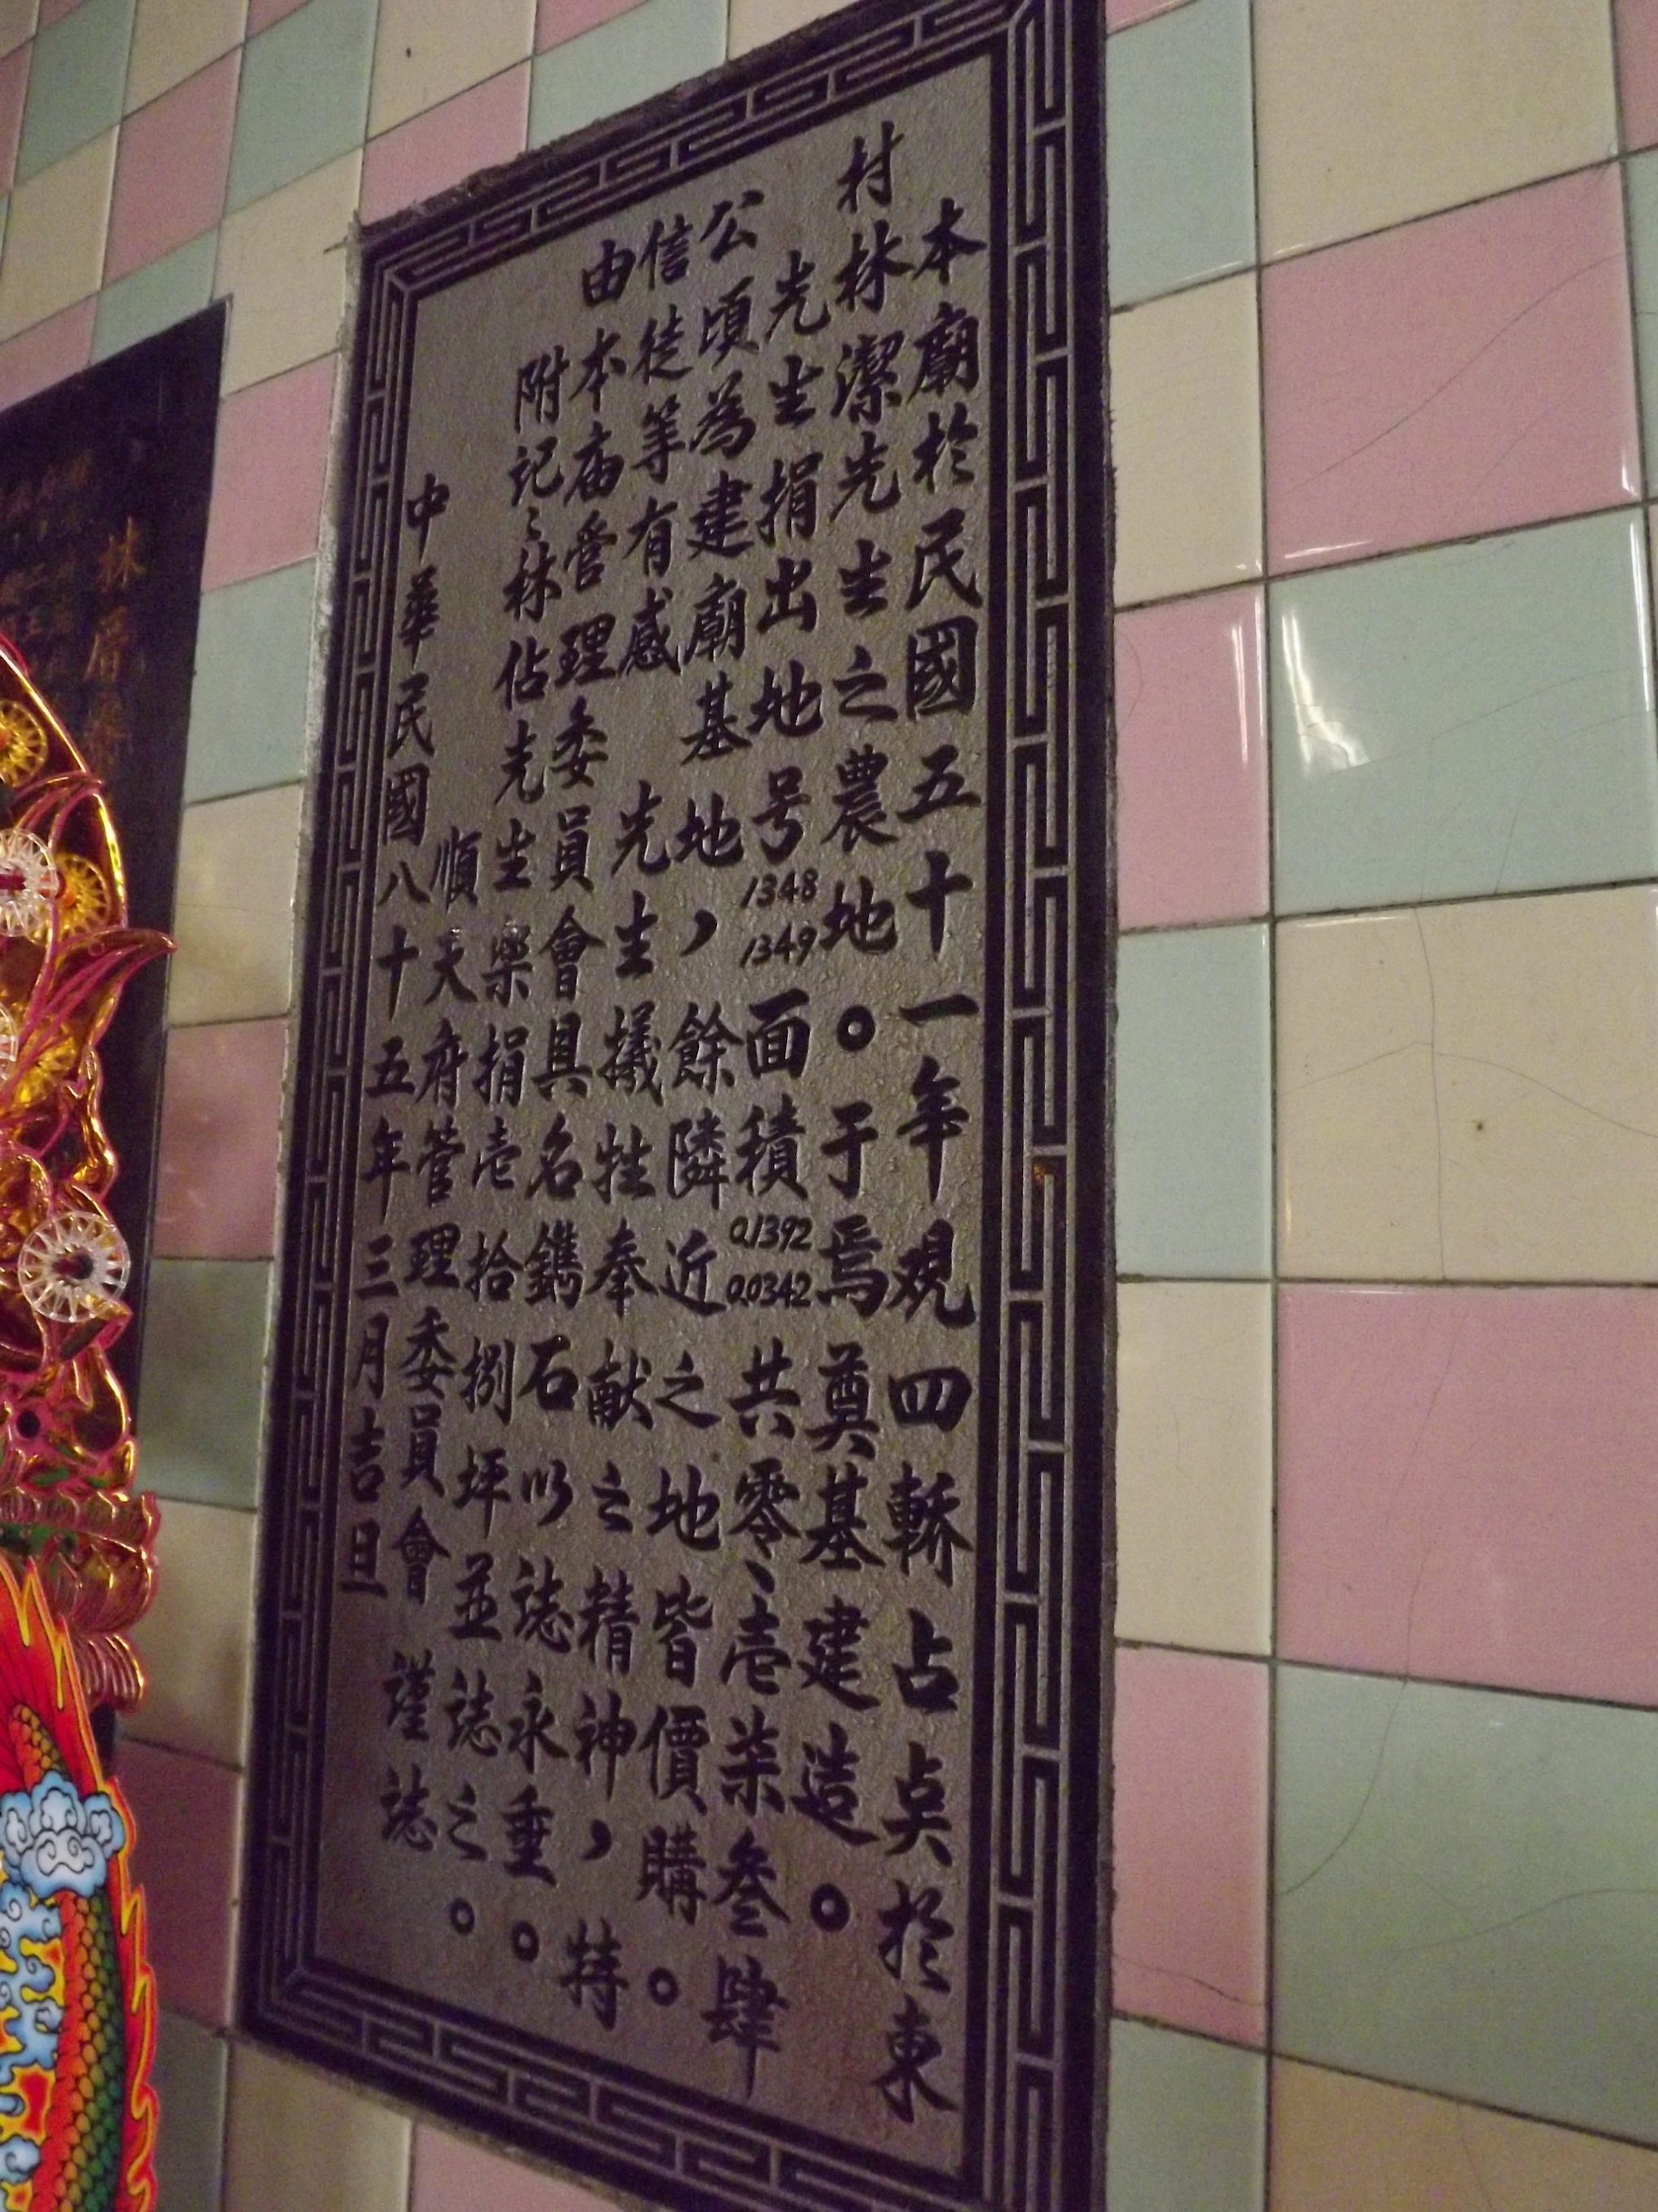 本廟於民國五十一年覌四轎占点於東
村林潔先生之農地。于焉奠基建造。
先生捐出地号1348 1349面積0.1392 0.0342共零、壱柒叄肆
公頃為建廟基地，餘隣近之地皆價購。
信徒等有感 先生攕牲奉献之精神，特
由本庙管理委員會具名鐫石以誌永垂。
附記：林佔先生樂捐壱拾捌坪並誌之。
順天府管理委員會 謹誌
中華民國八十五年三月吉旦
林府